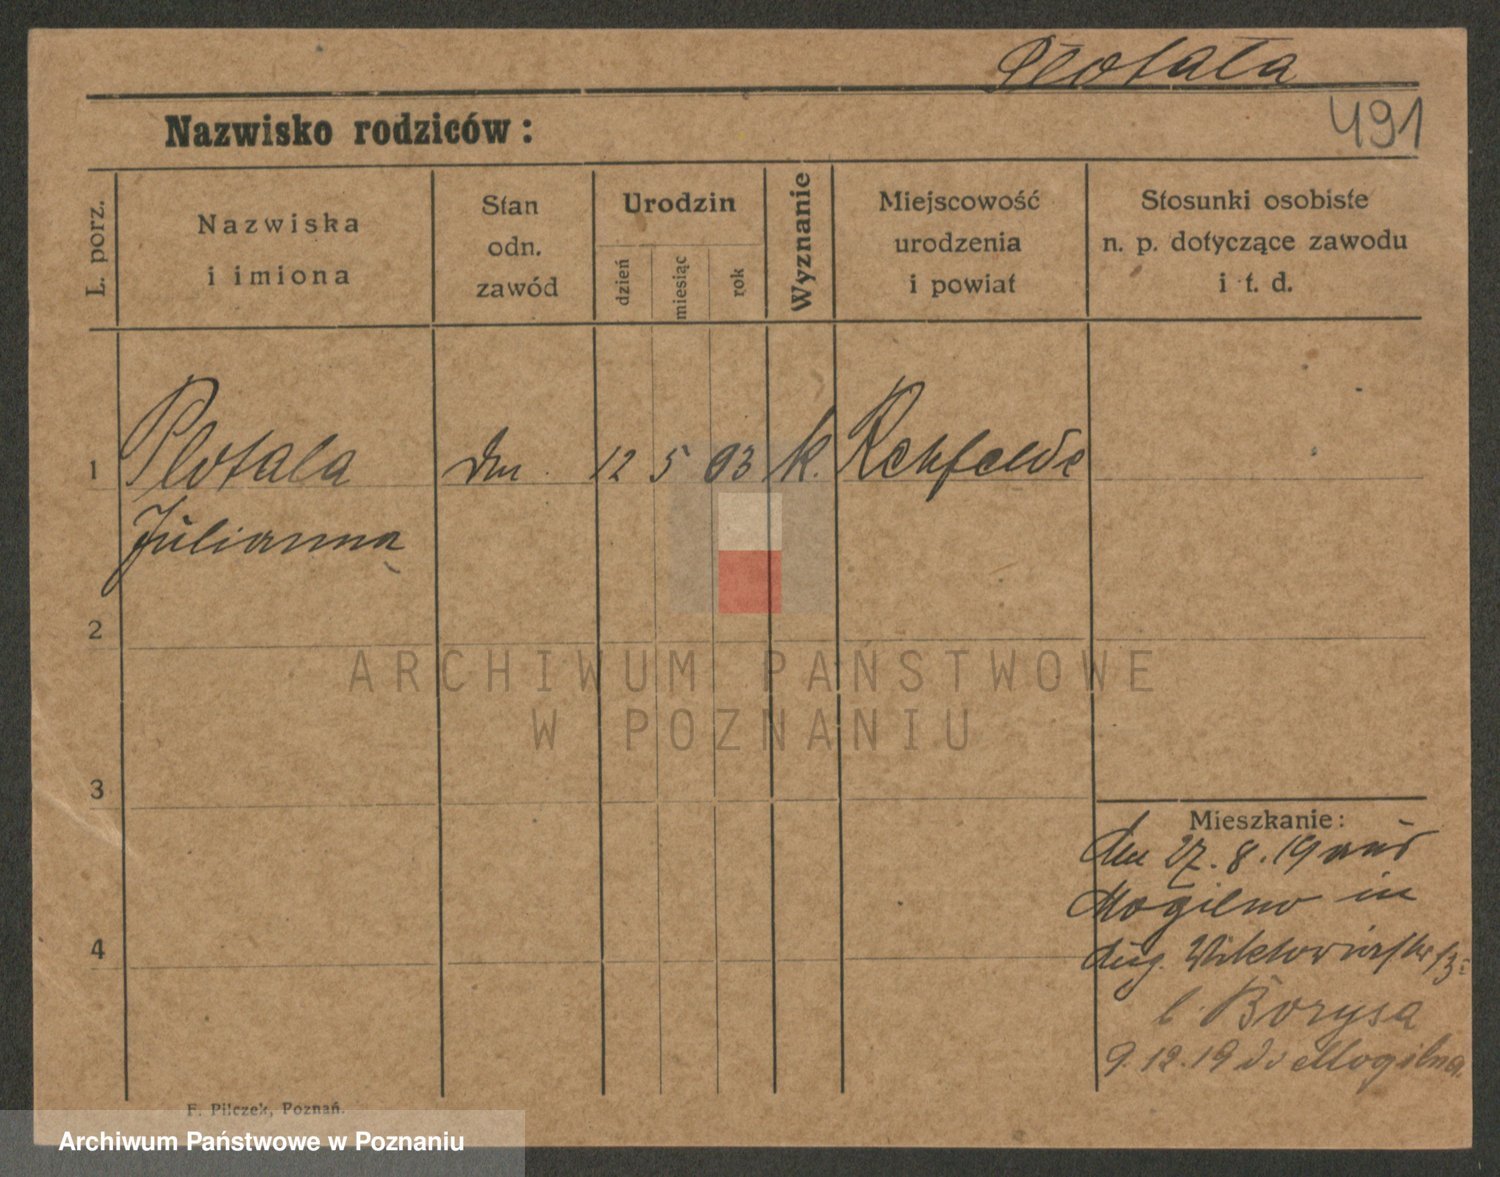 Plotala
491
Nazwisko rodziców:
L. porz.
Nazwiska
i imiona
Stan
odn.
zawód
Urodzin
dzień
miesiąc
rok
Wyznanie
Miejscowość
urodzenia
i powiat
Stosunki osobiste
n. p. dotyczące zawodu
i t. d.
1
Plotala
Julianna
12
5
03
k.
Rehfelde
2
3
4
Mieszkanie:
den 27. 8. 19 aus
Mogilno in
b. Borysa
9.12.19 do Mogilna.
F. Pilczek, Poznań.
ARCHIWUM PAŃSTWOWE
W POZNANIU
Archiwum Państwowe w Poznaniu